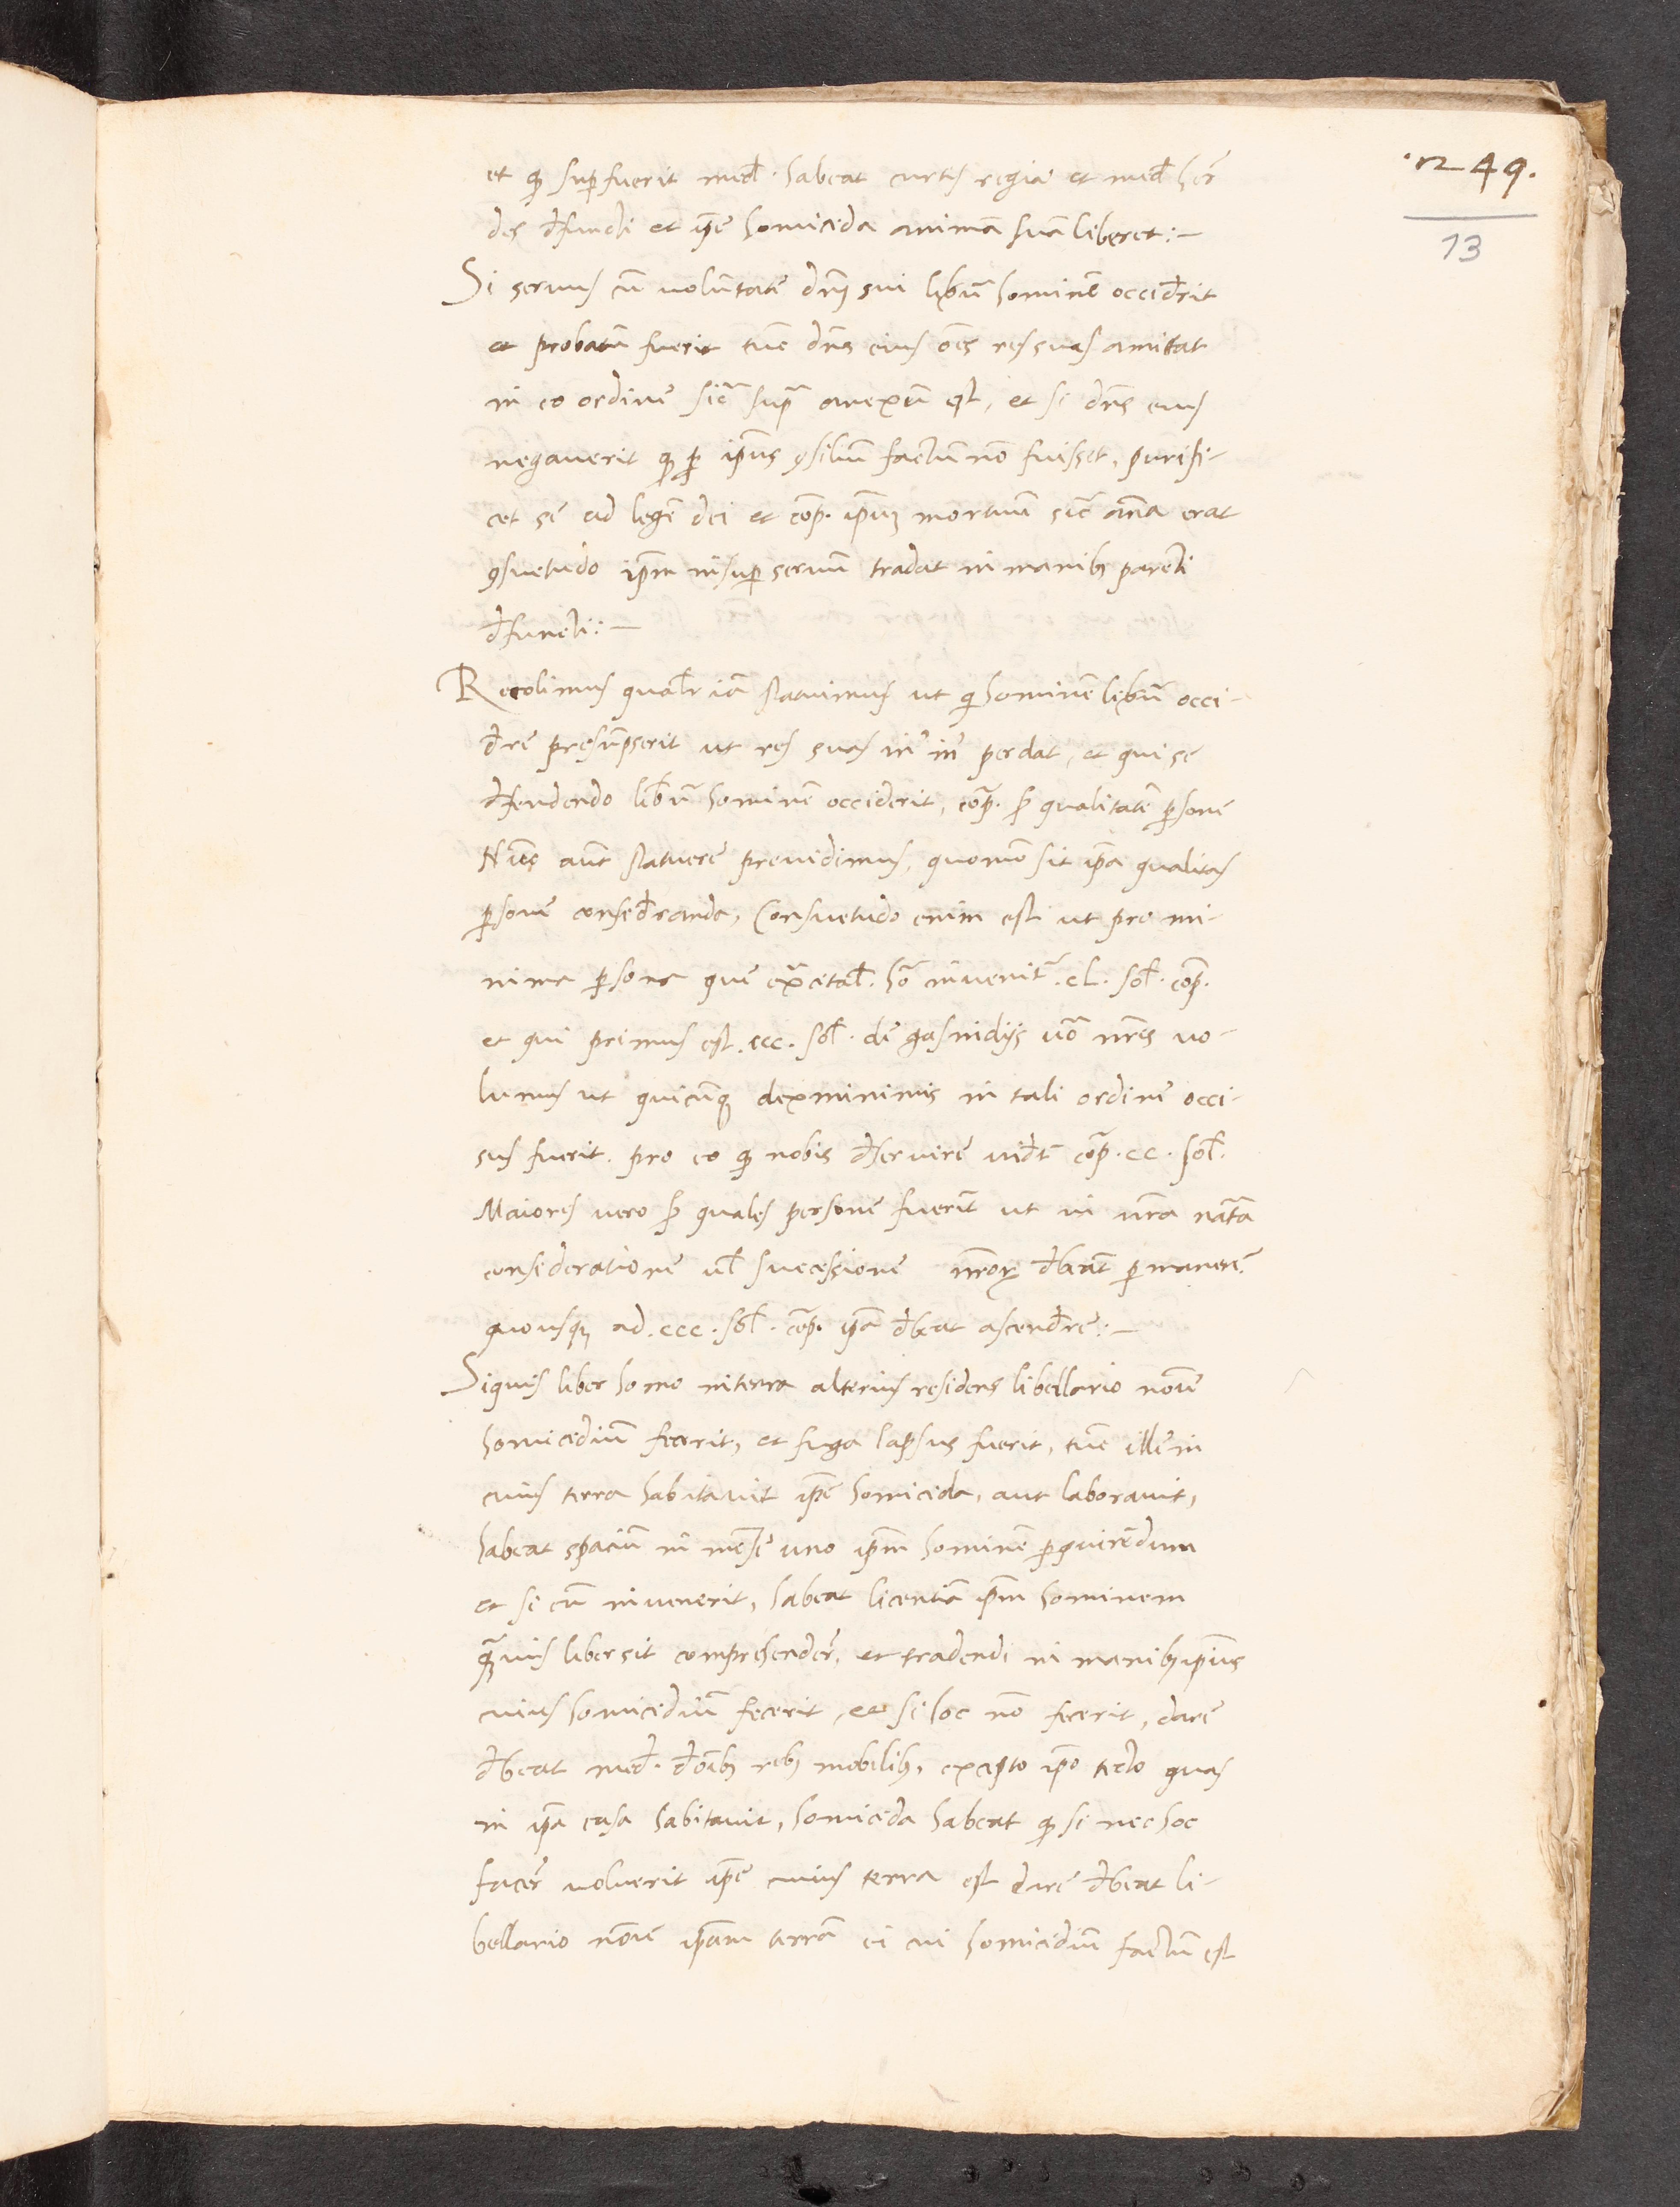 ·n 49.
13
et qđ supfuerit med̄· habeat curtis regia et med̄ herֿ
des đfuncti et ip̄e homicida animā suā liberet:—
Si seruus cū uoluntate dn̄i sui lib̄ū hominē occiđrit
et probatū fuerit tūc dn̄s eius oēs res suas amittat
in eo ordine sic̄ sup̄ anexū est, et si dn̄s eius
negauerit qđ p ip̄ius ꝯsiliū factū nō fuisset, purifi-
cet se ad legē dei et cop̄. ip̄um mortuū sic̄ an̄a erat
ꝯsuetudo ip̄m insup seruum tradat in manibꝫ parenti
đfuncti:—
Recolimus qual̄r iā statuimus ut qi hominē lib̄ū occi-
đre presūpserit ut res suas in īn perdat, et qui se
đfendendo lib̄ū hominē occiderit, cop̄. p qualitatē psone
Nūc aūt statuere preuidimus, quomō sit ip̄a qualitas
psone conseđranda, Consuetudo enim est ut pro mi-
nima psona que exercital̄. hō inuenit̄. cL. sol̄. cop̄.
et qui primus est. ccc. sol̄. de gasindijs uō nr̄is uo-
lumus ut quicūqꝫ dexminimis in tali ordine occi-
sus fuerit. pro eo qđ nobis đseruire uiđt cop̄. cc. sol̄.
Maiores uero p quales persone fuerīt ut in nr̄a nat̄a
consideratione ul̄ successione nr̄oꝝ đbeāt pmanere.
quousqꝫ ad. ccc. sol̄. cop̄. ip̄a đbeat ascenđre:—
Siquis liber homo interra alterius residens libellario noīe
homicidiū fecerit, et fuga lapsus fuerit, tūc ille in
cuius terra habitauit ip̄e homicida, aut laborauit,
habeat spaciū in mense uno ip̄m hominē pquirendum
et si eū inuenerit, habeat licentiā ip̄m hominem
qūis liber sit comprehender̄, et tradendi in manibꝫ ip̄ius
cuius homicidiū fecerit, et si hoc nō fecerit, dare
đbeat med̄. đ oībꝫ rebꝫ mobilibꝫ, excepto ip̄o tecto quas
in ip̄a casa habitauit, homicida habeat qđ si nec hoc
facer̄ uoluerit ip̄e cuius terra est dare đbeat li-
bellario noīe ip̄am terrā ei cui homicidiū factū est